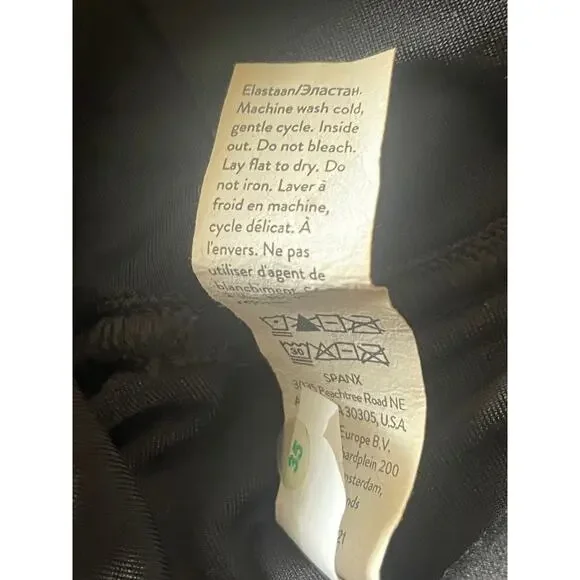 Elastaan/Эластан.
Machine wash cold,
gentle cycle. Inside
out. Do not bleach.
Lay flat to dry. Do
not iron. Laver à
froid en machine,
cycle délicat. À
l'envers. Ne pas
utiliser d'agent de
blanchiment.
30
SPANX
Peachtree Road NE
30305, U.S.A.
Europe B.V.
200
35
21